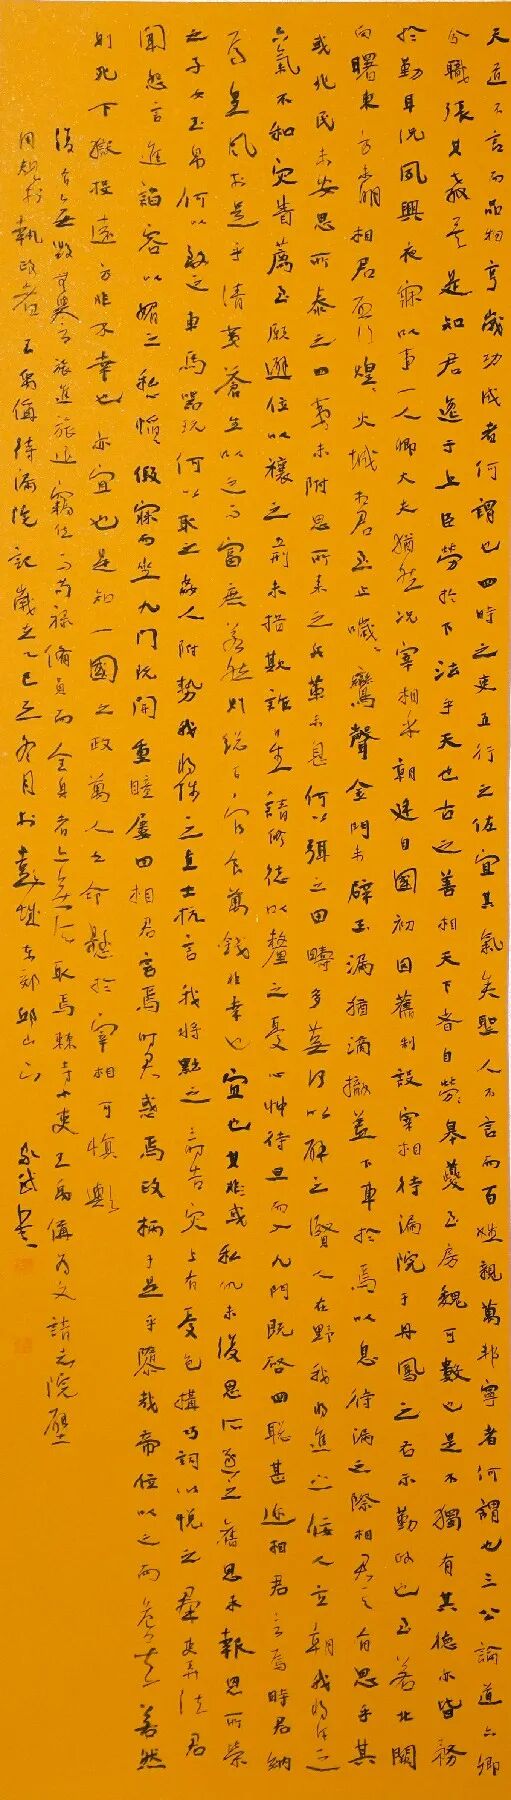 天道不言而品物亨歲功成者何謂也四時之吏五行之佐宜其氣矣聖人不言而百姓親萬邦寧者何謂也三公論道六卿
分職張其教矣是知君逸于上臣勞於下法乎天也古之善相天下者自皋夔至房魏可數也是不獨有其德亦皆務
於勤耳況夙興夜寐以事一人卿大夫猶然況宰相乎朝廷自國初因舊制設宰相待漏院于丹鳳之右示勤政也至若北闕
向曙東方未明相君啟行煌、火城相君至止噦、鸞聲金門未闢玉漏猶滴撤蓋下車於焉以息待漏之際相君其有思乎其
或兆民未安思所泰之四夷未附思所來之兵革未息何以弭之田疇多蕪何以闢之賢人在野我將進之佞人立朝我將斥之
六氣不和災眚薦至願避位以禳之五刑未措欺詐日生請修德以釐之憂心忡待旦而入九門既啟四聰甚邇相君言焉時君納
焉皇風於是乎清夷蒼生以之而富庶若然則總百官食萬錢非幸也宜也其非或私仇未復思所逐之舊恩未報思所榮
之子女玉帛何以致之車馬器玩何以取之姦人附勢我將陟之直士抗言我將黜之三時告災上有憂色構巧詞以悅之群吏弄法君
聞怨言進諂容以媚之私慆、假寐而坐九門既開重瞳屢回相君言焉時君惑焉政柄于是乎隳哉帝位以之而危矣若然
則死下獄投遠方非不幸也亦宜也是知一國之政萬人之命懸於宰相可慎歟
復有無毀無譽旅進旅退竊位而苟祿備員而全身者亦無所取焉棘寺小吏王禹偁為文請志院壁
用規於執政者 王禹偁待漏院記歲在乙巳之冬月於彭城東郊邱山下